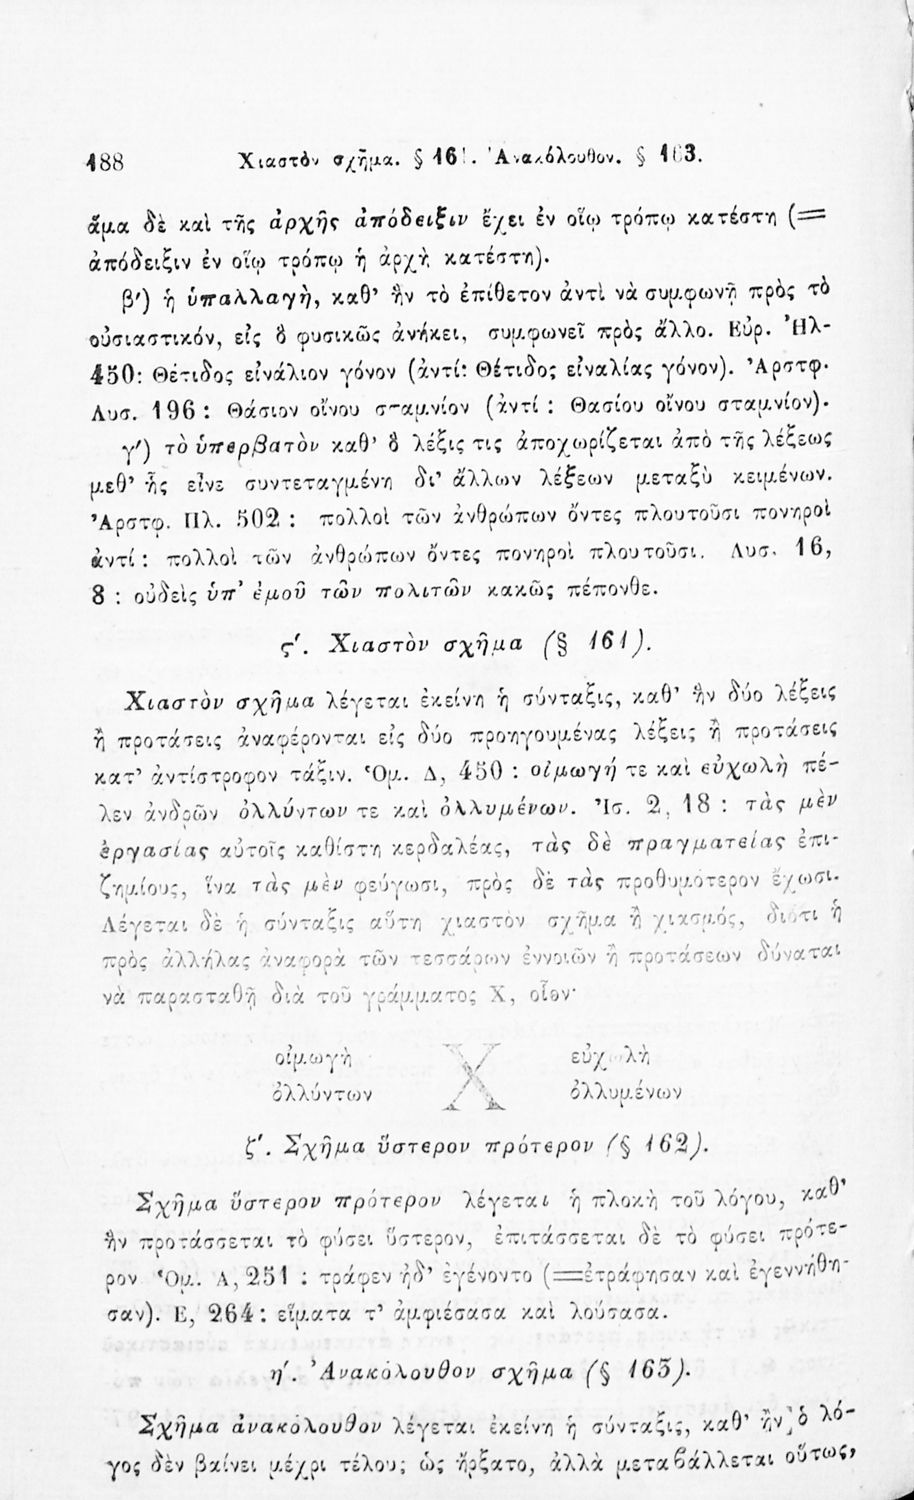 188 Χιαστὸν σχῆμα. § 161. Ἀνακόλουθον. § 163.
ἅμα δὲ καὶ τῆς ἀρχῆς ἀπόδειξιν ἔχει ἐν οἵῳ τρόπῳ κατέστη (=
ἀπόδειξιν ἐν οἵῳ τρόπῳ ἡ ἀρχὴ κατέστη).
β') ἡ ὑπαλλαγὴ, καθ' ἣν τὸ ἐπίθετον ἀντὶ νὰ συμφωνῇ πρὸς τὸ
οὐσιαστικόν, εἰς ὃ φυσικῶς ἀνήκει, συμφωνεῖ πρὸς ἄλλο. Εὐρ. Ἠλ-
450: Θέτιδος εἰνάλιον γόνον (ἀντί: Θέτιδος εἰναλίας γόνον). Ἀρστφ.
Λυσ. 196 : Θάσιον οἴνου σταμνίον (ἀντί : Θασίου οἴνου σταμνίον).
γ') τὸ ὑπερβατὸν καθ' ὃ λέξις τις ἀποχωρίζεται ἀπὸ τῆς λέξεως
μεθ' ἧς εἶνε συντεταγμένη δι' ἄλλων λέξεων μεταξὺ κειμένων.
Ἀρστφ. Πλ. 502 : πολλοὶ τῶν ἀνθρώπων ὄντες πλουτοῦσι πονηροὶ
ἀντί : πολλοὶ τῶν ἀνθρώπων ὄντες πονηροὶ πλουτοῦσι. Λυσ. 16,
8 : οὐδεὶς ὑπ' ἐμοῦ τῶν πολιτῶν κακῶς πέπονθε.
ς'. Χιαστὸν σχῆμα (§ 161).
Χιαστὸν σχῆμα λέγεται ἐκείνη ἡ σύνταξις, καθ' ἣν δύο λέξεις
ἢ προτάσεις ἀναφέρονται εἰς δύο προηγουμένας λέξεις ἢ προτάσεις
κατ' ἀντίστροφον τάξιν. Ὁμ. Δ, 450 : οἰμωγή τε καὶ εὐχωλὴ πέ-
λεν ἀνδρῶν ὀλλύντων τε καὶ ὀλλυμένων. Ἰσ. 2, 18 : τὰς μὲν
ἐργασίας αὐτοῖς καθίστη κερδαλέας, τὰς δὲ πραγματείας ἐπι-
ζημίους, ἵνα τὰς μὲν φεύγωσι, πρὸς δὲ τὰς προθυμότερον ἔχωσι.
Λέγεται δὲ ἡ σύνταξις αὕτη χιαστὸν σχῆμα ἢ χιασμός, διότι ἡ
πρὸς ἀλλήλας ἀναφορὰ τῶν τεσσάρων ἐννοιῶν ἢ προτάσεων δύναται
νὰ παρασταθῇ διὰ τοῦ γράμματος Χ, οἷον·
οἰμωγὴ Χ εὐχωλὴ
ὀλλύντων ὀλλυμένων
ζ'. Σχῆμα ὕστερον πρότερον (§ 162).
Σχῆμα ὕστερον πρότερον λέγεται ἡ πλοκὴ τοῦ λόγου, καθ'
ἣν προτάσσεται τὸ φύσει ὕστερον, ἐπιτάσσεται δὲ τὸ φύσει πρότε-
ρον Ὁμ. Α, 251 : τράφεν ἠδ' ἐγένοντο (=ἐτράφησαν καὶ ἐγεννήθη-
σαν). Ε, 264 : εἵματα τ' ἀμφιέσασα καὶ λούσασα.
η'. Ἀνακόλουθον σχῆμα (§ 163).
Σχῆμα ἀνακόλουθον λέγεται ἐκείνη ἡ σύνταξις, καθ' ἣν ὁ λό-
γος δὲν βαίνει μέχρι τέλους ὡς ἤρξατο, ἀλλὰ μεταβάλλεται οὕτως,